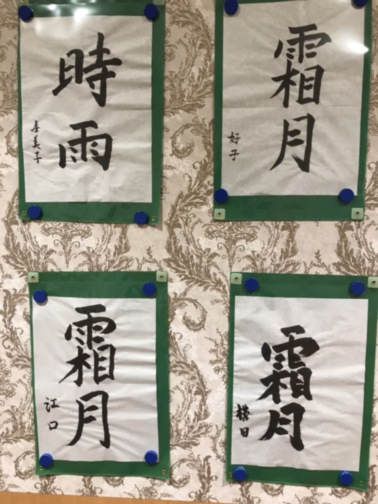 時雨
喜美子
霜月
好子
霜月
江口
霜月
横田